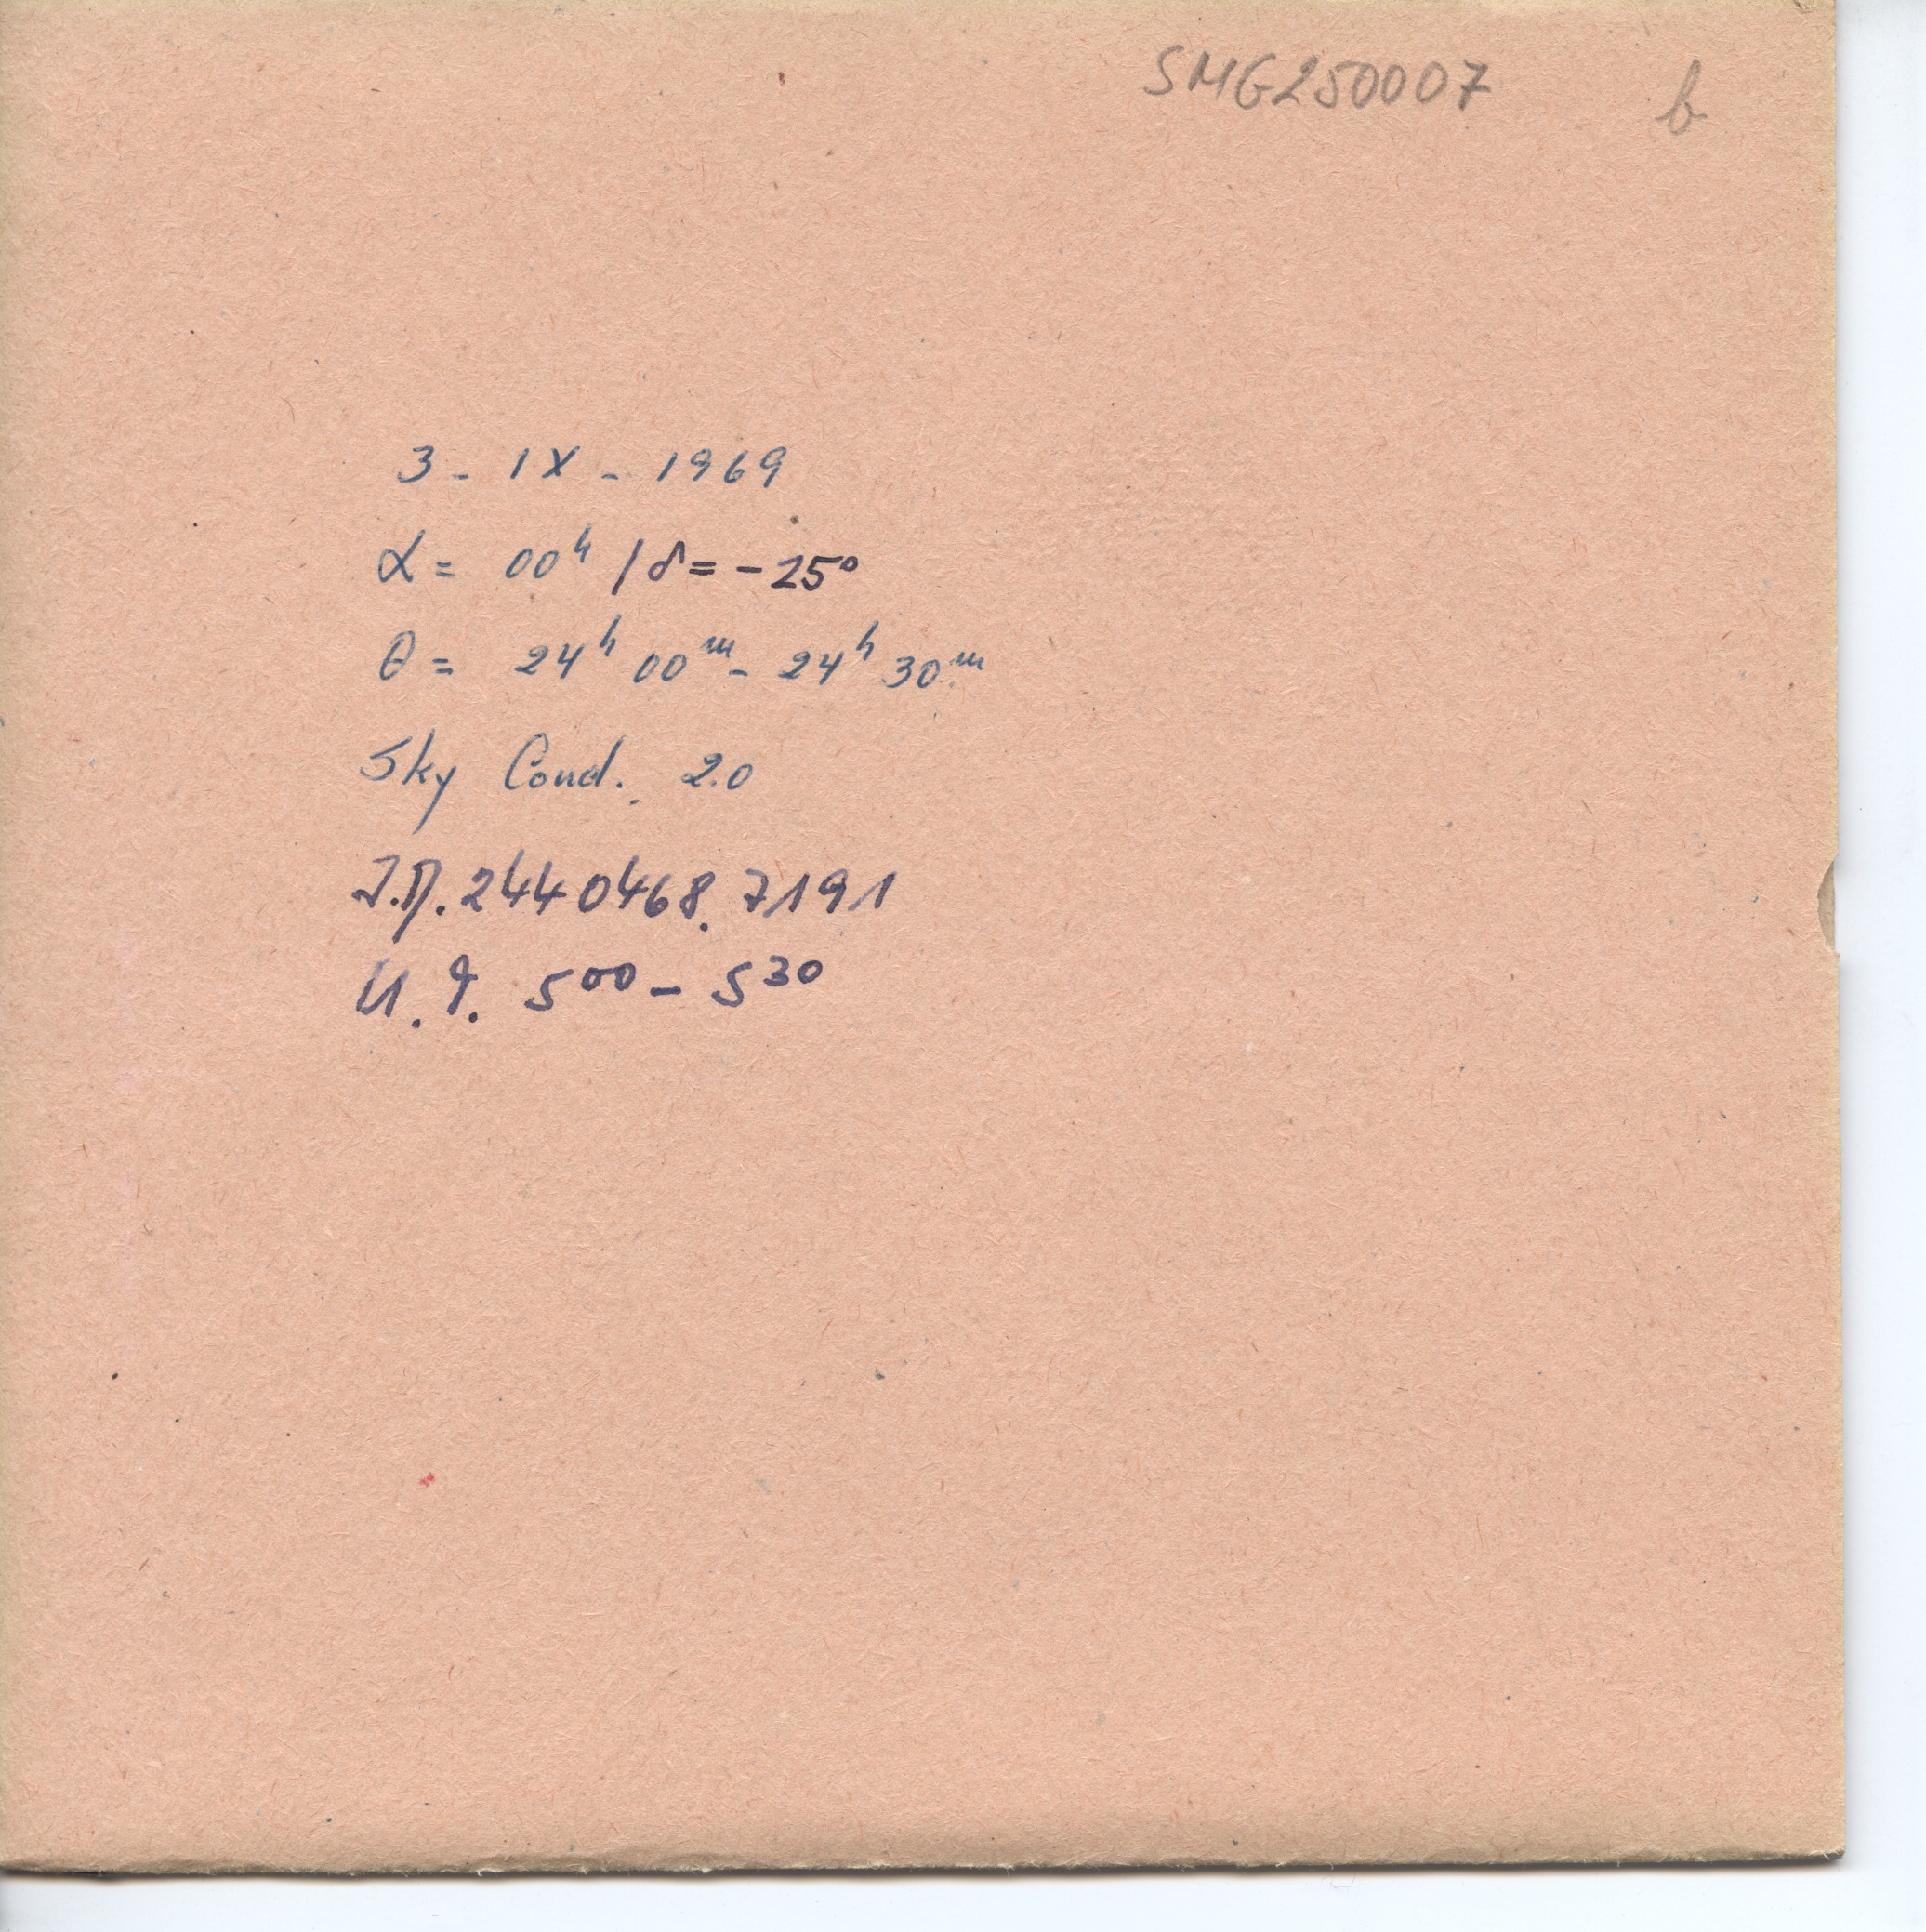 SMG250007 b
3 - IX - 1969
α = 00ʰ / δ = -25°
θ = 24ʰ 00ᵐ - 24ʰ 30ᵐ
Sky Cond. 2.0
J.D. 2440468.7191
U.T. 5⁰⁰ - 5³⁰